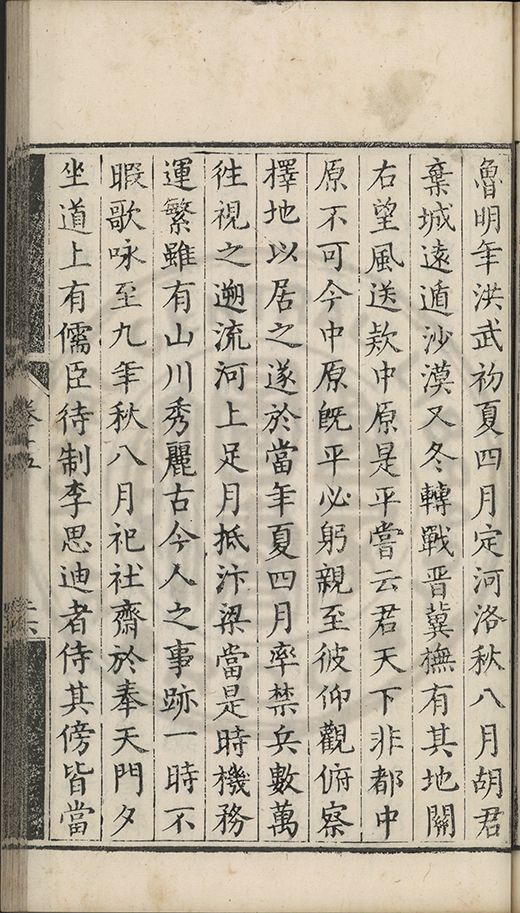 魯明年洪武初夏四月定河洛秋八月胡君
棄城遠遁沙漠又冬轉戰晋冀撫有其地關
右望風送欵中原是平嘗云君天下非都中
原不可今中原既平必躬親至彼仰觀俯察
擇地以居之遂於當年夏四月率禁兵數萬
往視之遡流河上足月抵汴梁當是時機務
運繁雖有山川秀麗古今人之事跡一時不
暇歌咏至九年秋八月祀社齋於奉天門夕
坐道上有儒臣待制李思迪者侍其傍皆當